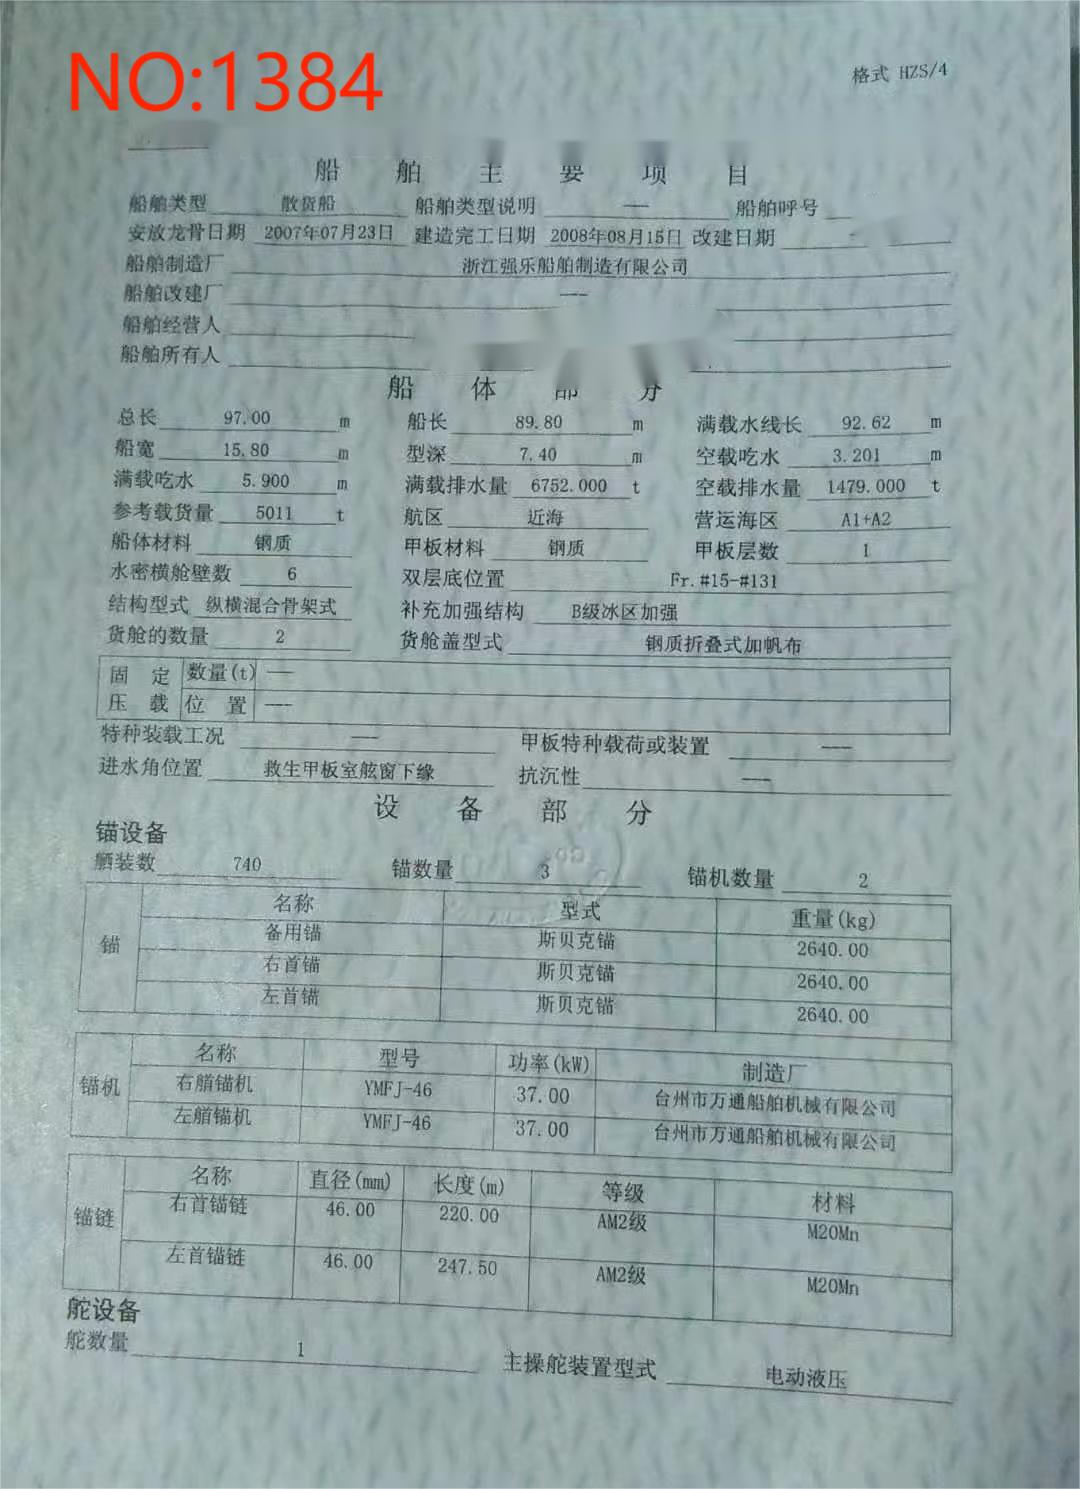 NO:1384
格式 HZS/4
船舶主要项目
船舶类型 散货船 船舶类型说明 --- 船舶呼号
安放龙骨日期 2007年07月23日 建造完工日期 2008年08月15日 改建日期
船舶制造厂 浙江强乐船舶制造有限公司
船舶改建厂 ---
船舶经营人
船舶所有人
船体部分
总长 97.00 m 船长 89.80 m 满载水线长 92.62 m
船宽 15.80 m 型深 7.40 m 空载吃水 3.201 m
满载吃水 5.900 m 满载排水量 6752.000 t 空载排水量 1479.000 t
参考载货量 5011 t 航区 近海 营运海区 A1+A2
船体材料 钢质 甲板材料 钢质 甲板层数 1
水密横舱壁数 6 双层底位置 Fr.#15-#131
结构型式 纵横混合骨架式 补充加强结构 B级冰区加强
货舱的数量 2 货舱盖型式 钢质折叠式加帆布
固定压载 数量(t) ---
位置 ---
特种装载工况 --- 甲板特种载荷或装置 ---
进水角位置 救生甲板室舷窗下缘 抗沉性 ---
设备部分
锚设备
舾装数 740 锚数量 3 锚机数量 2
锚 名称 型式 重量(kg)
备用锚 斯贝克锚 2640.00
右首锚 斯贝克锚 2640.00
左首锚 斯贝克锚 2640.00
锚机 名称 型号 功率(kW) 制造厂
右艏锚机 YMFJ-46 37.00 台州市万通船舶机械有限公司
左艏锚机 YMFJ-46 37.00 台州市万通船舶机械有限公司
锚链 名称 直径(mm) 长度(m) 等级 材料
右首锚链 46.00 220.00 AM2级 M20Mn
左首锚链 46.00 247.50 AM2级 M20Mn
舵设备
舵数量 1 主操舵装置型式 电动液压